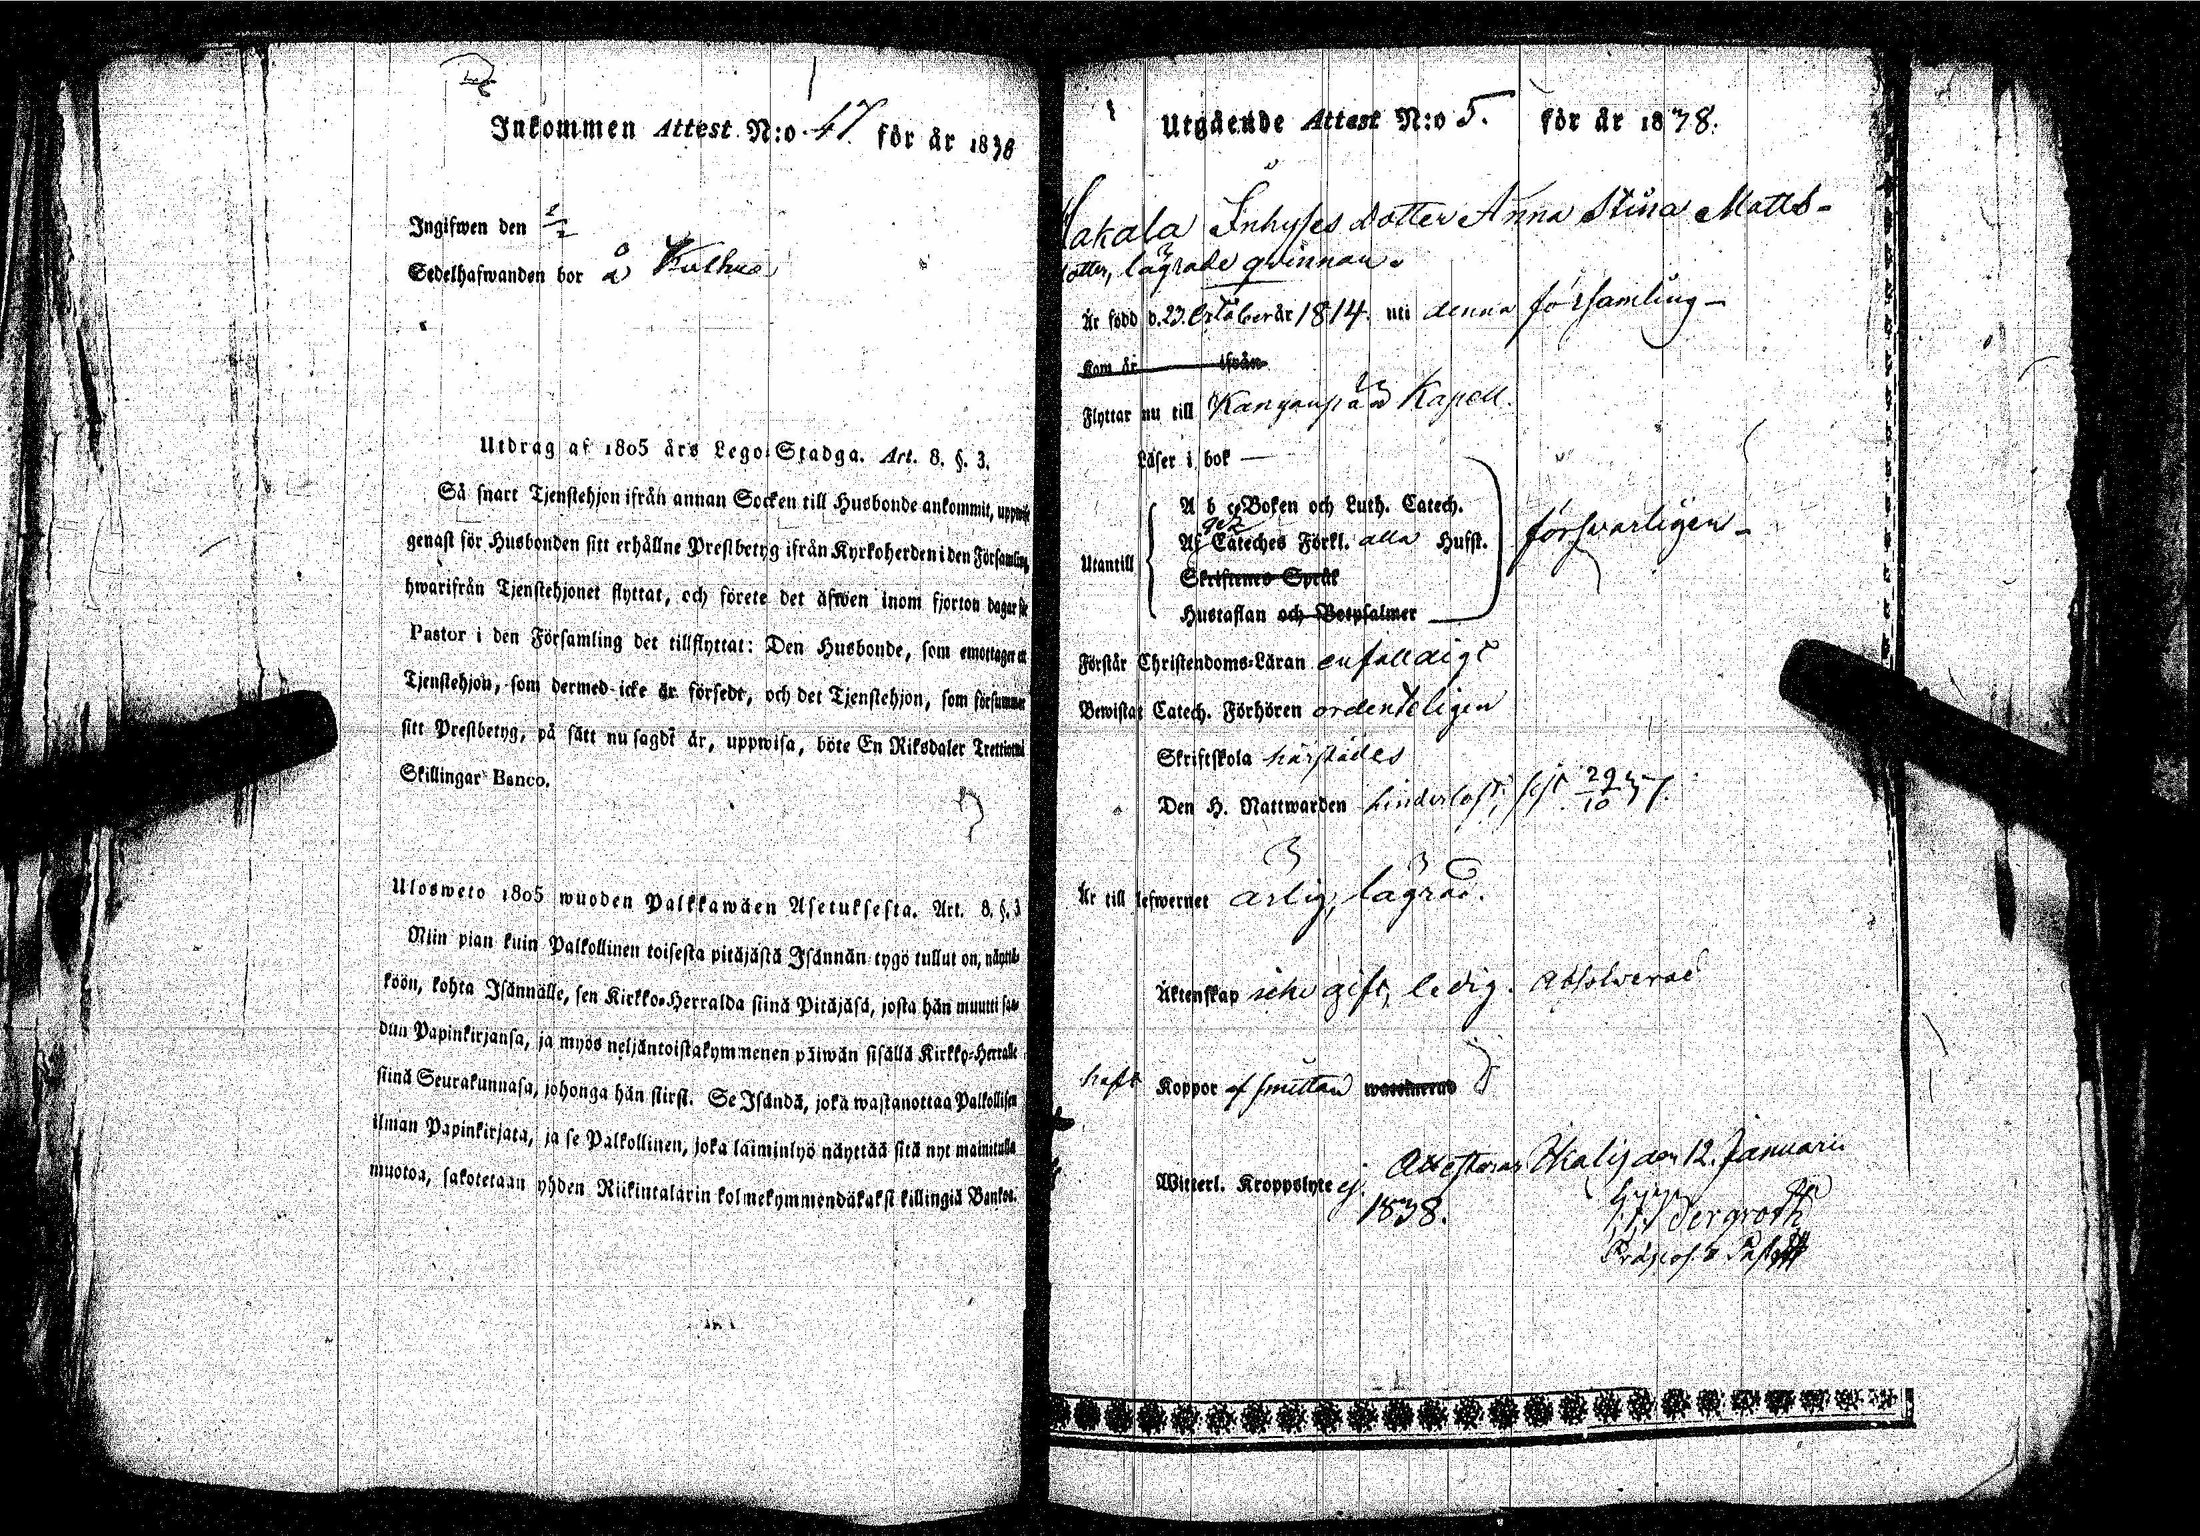 Inkommen Attest N:o 47. för år 1838
Ingifwen den
Sedelhafwanden bor å
Utdrag af 1805 års Lego-Stadga. Art. 8. §. 3.
Så snart Tjenstehjon ifrån annan Socken till Husbonde ankommit, uppwise
genast för Husbonden sitt erhållne Prestbetyg ifrån Kyrkoherden i den Församling,
hwarifrån Tjenstehjonet flyttat, och förete det äfwen inom fjorton dagar för
Pastor i den Församling det tillflyttat: Den Husbonde, som emottager ett
Tjenstehjon, som dermed icke är försedt, och det Tjenstehjon, som försummar
sitt Prestbetyg, på sätt nu sagdt är, uppwisa, böte En Riksdaler Trettiotwå
Skillingar Banco.
Ulosweto 1805 wuoden Palkkawäen Asetuksesta. Art. 8. §. 3
Niin pian kuin Palkollinen toisesta pitäjästä Isännän tygö tullut on, näyttä-
köön, kohta Isännälle, sen Kirkko-Herralda siinä Pitäjäsä, josta hän muutti saa-
dun Papinkirjansa, ja myös neljäntoistakymmenen päiwän sisällä Kirkko-Herralle
siinä Seurakunnasa, johonga hän siirsi. Se Isändä, joka wastanottaa Palkollisen
ilman Papinkirjata, ja se Palkollinen, joka laiminlyö näyttää sitä nyt mainitulla
muotoa, sakotetaan yhden Riikintalarin kolmekymmendäkaksi killingiä Bankos.
Utgående Attest N:o 5. för år 1838.
Hakala Inhyses dotter Anna Stina Matts-
dotter, lägrade qvinnan.
Är född d. 23. October år 1814. uti denna församling
Kom år ifrån
Flyttar nu till Kanganpää Kapell.
Läser i bok
A b c-Boken och Luth. Catech.
Af Cateches Förkl. alla Husst.
Utantill försvarligen
Skriftenes Språk
Hustaflan och Botpsalmer
Förstår Christendoms-Läran enfaldigt
Bewistat Catech. Förhören ordenteligen
Skriftskola härstädes
Den H. Nattwarden hinderlöst, sist 29/10 37.
Är till lefwernet ärlig, lägrad.
Äktenskap icke gift, ledig. absolverad
haft Koppor af smittan waccinerad
Witterl. Kroppslyte ej. Attesteras Ikalis den 12. Januarii
1838. Bergroth